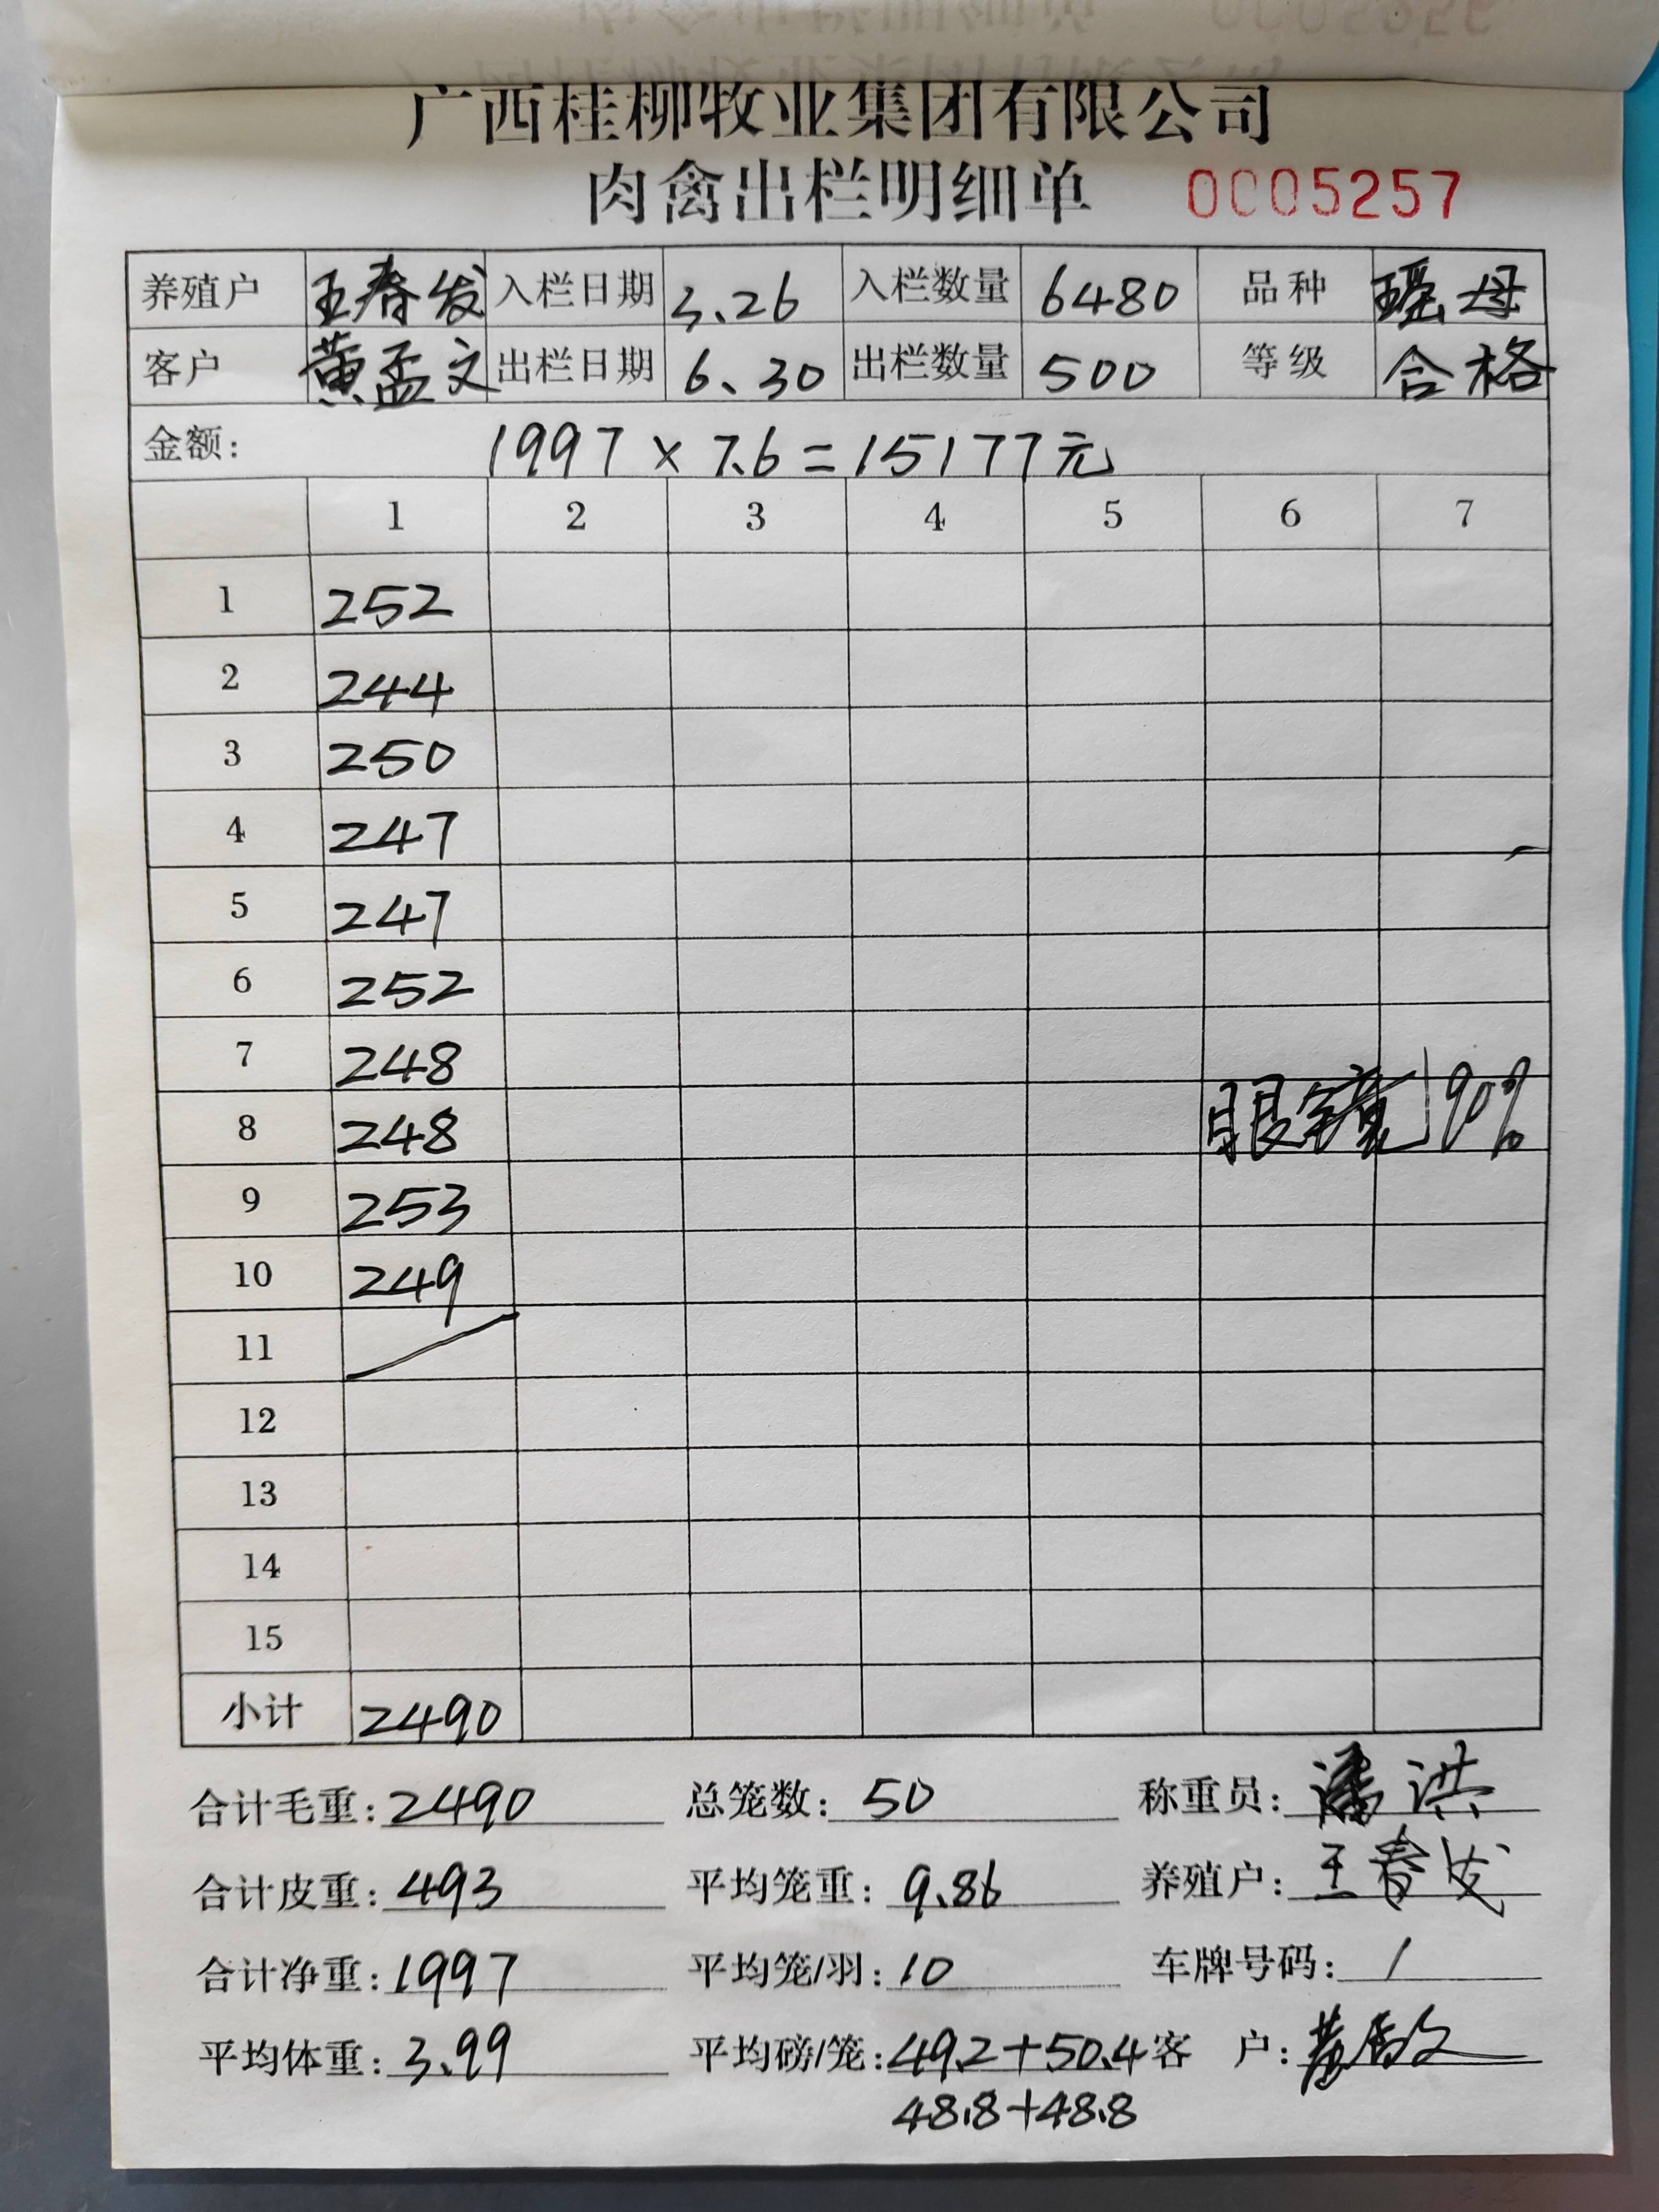 广西桂柳牧业集团有限公司
肉禽出栏明细单 0005257
养殖户 王春发 入栏日期 3.26 入栏数量 6480 品种 瑶母
客户 黄孟文 出栏日期 6.30 出栏数量 500 等级 合格
金额: 1997×7.6=15177元
1 2 3 4 5 6 7
1 252
2 244
3 250
4 247
5 247
6 252
7 248
8 248 眼镜 90%
9 253
10 249
11
12
13
14
15
小计 2490
合计毛重:2490 总笼数:50 称重员:潘洪
合计皮重:493 平均笼重:9.86 养殖户:王春发
合计净重:1997 平均笼/羽:10 车牌号码:/
平均体重:3.99 平均磅/笼:49.2+50.4 客 户:黄孟文
48.8+48.8